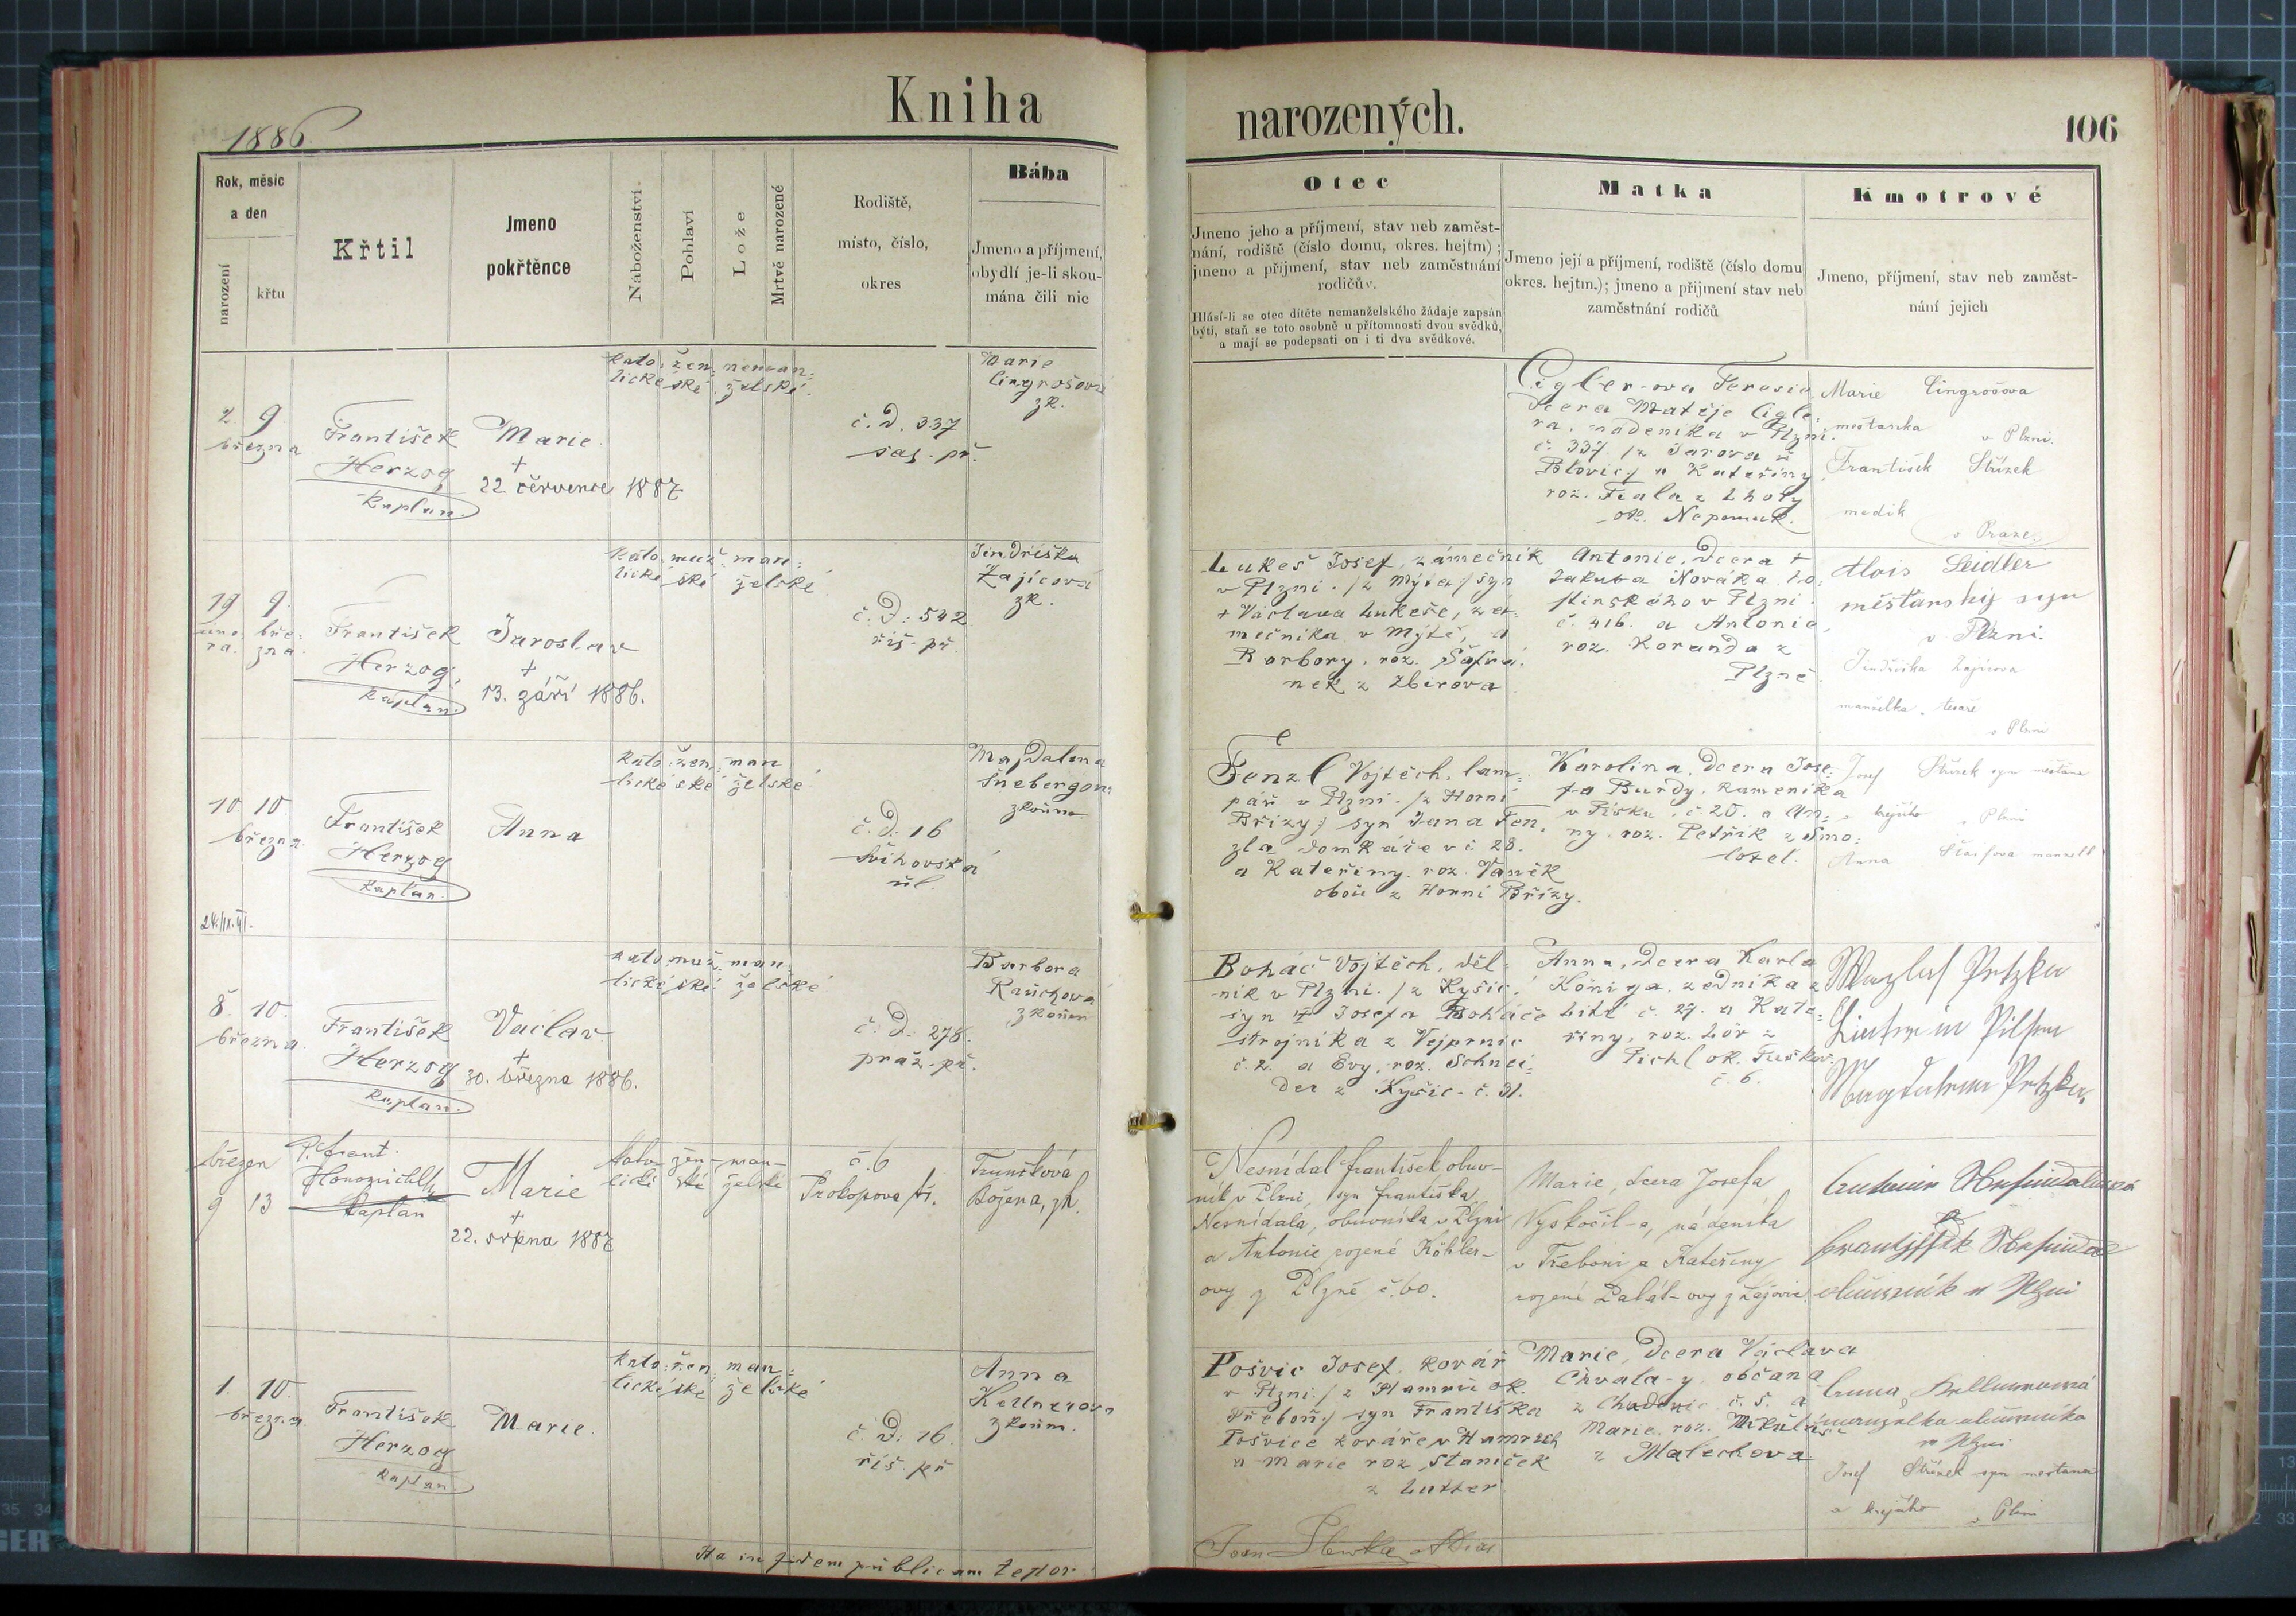 Kniha
narozených.
106
1886.
Rok, měsíc
a den
narození
křtu
Křtil
Jmeno
pokřtěnce
Náboženství
Pohlaví
Lože
Mrtvě narozené
Rodiště,
místo, číslo,
okres
Bába
Jmeno a příjmení,
obydlí je-li skou-
mána čili nic
Otec
Jmeno jeho a příjmení, stav neb zaměst-
nání, rodiště (číslo domu, okres. hejtm) ;
jmeno a příjmení, stav neb zaměstnání
rodičův.
Hlásí-li se otec dítěte nemanželského žádaje zapsán
býti, staň se toto osobně u přítomnosti dvou svědků,
a mají se podepsati on i ti dva svědkové.
Matka
Jmeno její a příjmení, rodiště (číslo domu
okres. hejtm.); jmeno a příjmení stav neb
zaměstnání rodičů
Kmotrové
Jmeno, příjmení, stav neb zaměst-
nání jejich
2 9
března
František
Herzog
kaplan.
Marie.
+
22. července 1887
kato: žen: neman:
lické ské želské.
č. d. 337
sas. př.
Marie
Cingrošova
zk.
Cigler-ova Teresie
dcera Matěje Cigle:
ra, nádeníka v Plzni.
č. 337 /z Žarova u
Blovic/ a Kateřiny
roz. Fiala z Lhoty
ok. Nepomuk.
Marie Cingrošova
mestanka
v Plzni.
František Stůzek
medik
v Praze.
19 9.
úno: bře:
ra. zna
František
Herzog,
kaplan.
Jaroslav
+
13. září 1886.
kato: muž: man:
lické ské želské
č. d: 542
říš. př.
Jindřiška
Zajícová
zk.
Lukeš Josef, zámečník
v Plzni. /z Mýta/ syn
+ Václava Lukeše, zá:
mečníka v Mýtě, a
Barbory, roz. Šafrá:
nek z Zbirova
Antonie, dcera +
Jakuba Nováka ho:
stinského v Plzni.
č. 416. a Antonie,
roz. Koranda z
Plzně
Alois Seidler
měšťanský syn
v Plzni.
Jindřiška Zajícova
manželka tesaře
v Plzni
10 10.
března
František
Herzog
kaplan.
Anna
kato: žen: man
lické ské želské
č. d: 16
Švihovská
ul.
Majdalena
Šnebergov:
zkoum
Fenzl Vojtěch, lam:
pář v Plzni. /z Horní
Břízy/ syn Jana Fen
zla domkáře v č 28.
a Kateřiny. roz. Vaněk
obou z Horní Břízy.
Karolina, dcera Jose:
fa Burdy, kameníka
v Písku, č. 20. a An:
ny. roz. Petřík z Smo:
lotel.
Josef Stůzek syn mestana
a krejčího v Plzni
Anna
8. 10.
března.
František
Herzog
kaplan.
Vaclav
+
30. března 1886.
kato muž: man
lické ské želské
č. d: 276.
praž. př.
Barbora
Rauchova
zkoum
Boháč Vojtěch, děl:
ník v Plzni. /z Kyšic/
syn Josefa Boháče
strojníka z Vejprnic
č. 2. a Evy, roz. Schnei:
der z Kyšic. č. 31.
Anna, dcera Karla
Königa, zedníka z
Litic č. 27. a Kate:
řiny, roz. Lör z
Pichl ok. Tuškov.
č. 6.
Wenzlaf Petzka
in Pilsen
Magdalena Petzka.
březen
9 13
P. Frant.
Honomichl
kaplan
Marie
+
22. srpna 1887
kato- žen- man-
lické ské želské
č. 6
Prokopova tř.
Trunčková
Božena, zk.
Nesnídal František obuv-
ník v Plzni, syn Františka
Nesnídala, obuvníka v Plzni
a Antonie rozené Köhler-
ovy z Plzně č. 60.
Marie, dcera Josefa
Vyskočil-a, nádeníka
v Třeboni a Kateřiny
rozené Palát-ovy z Lájovic.
Antonie Nesnidalova
František Nesnidal
obuvník v Plzni
1. 10.
března.
František
Herzog
kaplan.
Marie.
kato: žen: man:
lické ské želské
č. d: 16.
říš. př
Anna
Kellnerova
zkoum.
Pošvic Josef, kovář
v Plzni. /z Hamrů ok.
Třeboň/ syn Františka
Pošvice kováře v Hamrech
a Marie roz. Staněček
z Lutter
Marie, dcera Václava
Chvala-y, občana
z Chudenic č. 5. a
Marie. roz. Mikuláš:
z Malechova
Anna Kellnerová
manželka obuvníka
v Plzni
Josef Stůzek syn mestana
a krejčího v Plzni
Ita in fidem publicam testor: